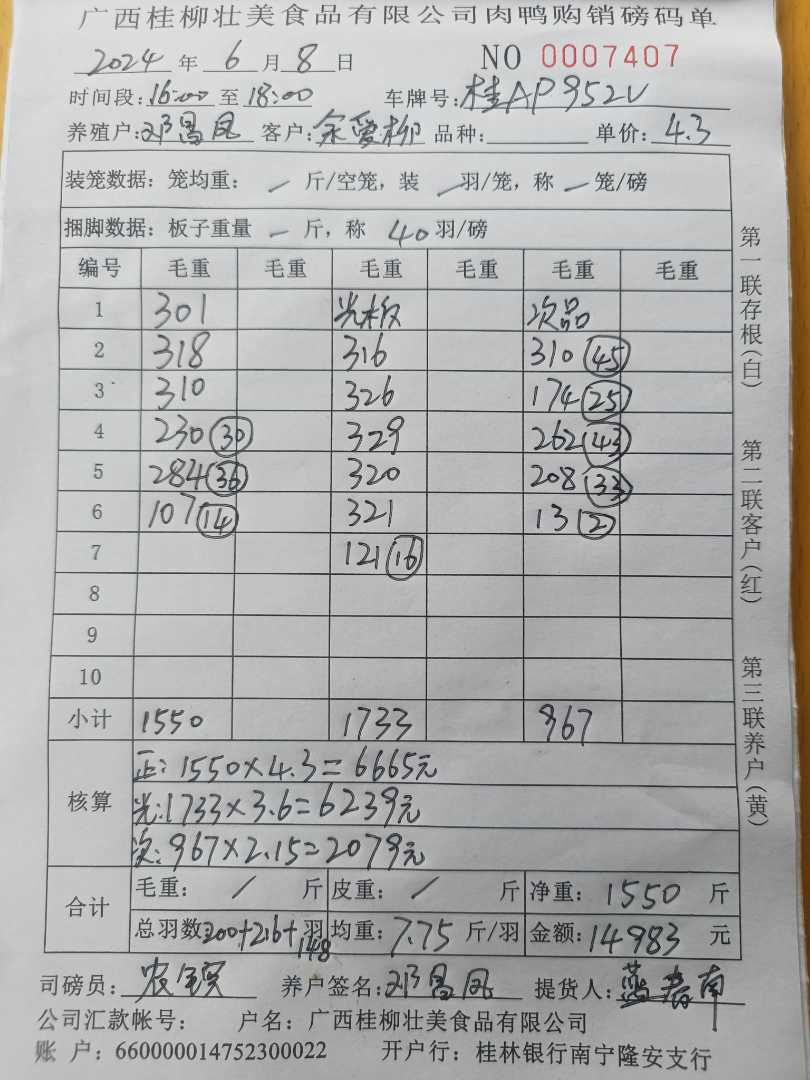 广西桂柳壮美食品有限公司肉鸭购销磅码单
2024 年 6 月 8 日 NO 0007407
时间段: 16:00 至 18:00 车牌号: 桂AP952V
养殖户: 邓昌凤 客户: 余爱柳 品种: 单价: 4.3
装笼数据: 笼均重: / 斤/空笼, 装 / 羽/笼, 称 / 笼/磅
捆脚数据: 板子重量 / 斤, 称 40 羽/磅
编号 毛重 毛重 毛重 毛重 毛重 毛重
1 301 光板 次品
2 318 316 310 45
3 310 326 174 25
4 230 30 329 262 43
5 284 36 320 208 33
6 107 14 321 13 2
7 121 16
8
9
10
小计 1550 1733 967
核算 正: 1550×4.3=6665元
光: 1733×3.6=6239元
次: 967×2.15=2079元
合计 毛重: / 斤 皮重: / 斤 净重: 1550 斤
总羽数 200+216+148 羽 均重: 7.75 斤/羽 金额: 14983 元
司磅员: 养户签名: 邓昌凤 提货人:
公司汇款帐号: 户名: 广西桂柳壮美食品有限公司
账 户: 660000014752300022 开户行: 桂林银行南宁隆安支行
第一联存根(白)
第二联客户(红)
第三联养户(黄)